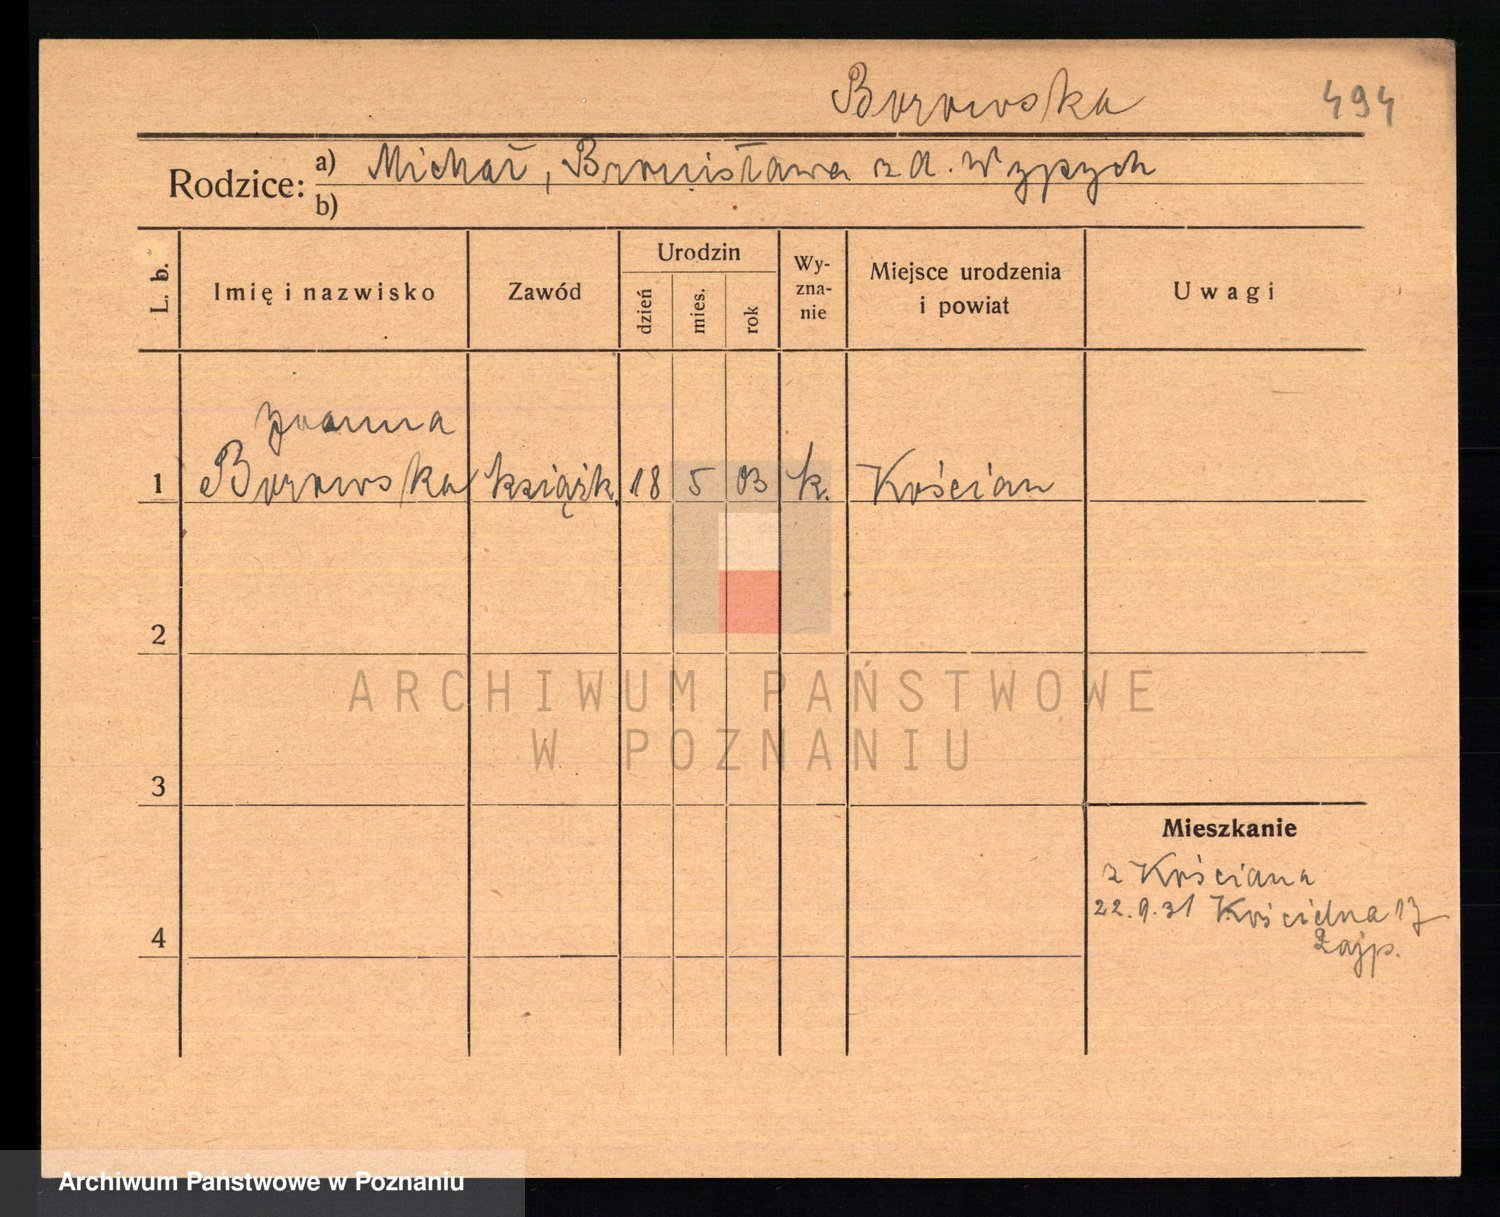 Borowska 494
Rodzice: a) Michał, Bronisława z d. Wypych
b)
L. b. Imię i nazwisko Zawód Urodzin dzień mies. rok Wy-zna-nie Miejsce urodzenia i powiat Uwagi
Joanna
1 Borowska książk. 18 5 03 k. Kościan
2
ARCHIWUM PAŃSTWOWE
W POZNANIU
3
Mieszkanie
z Kościana
22.9.31 Kościelna 17
4
Archiwum Państwowe w Poznaniu